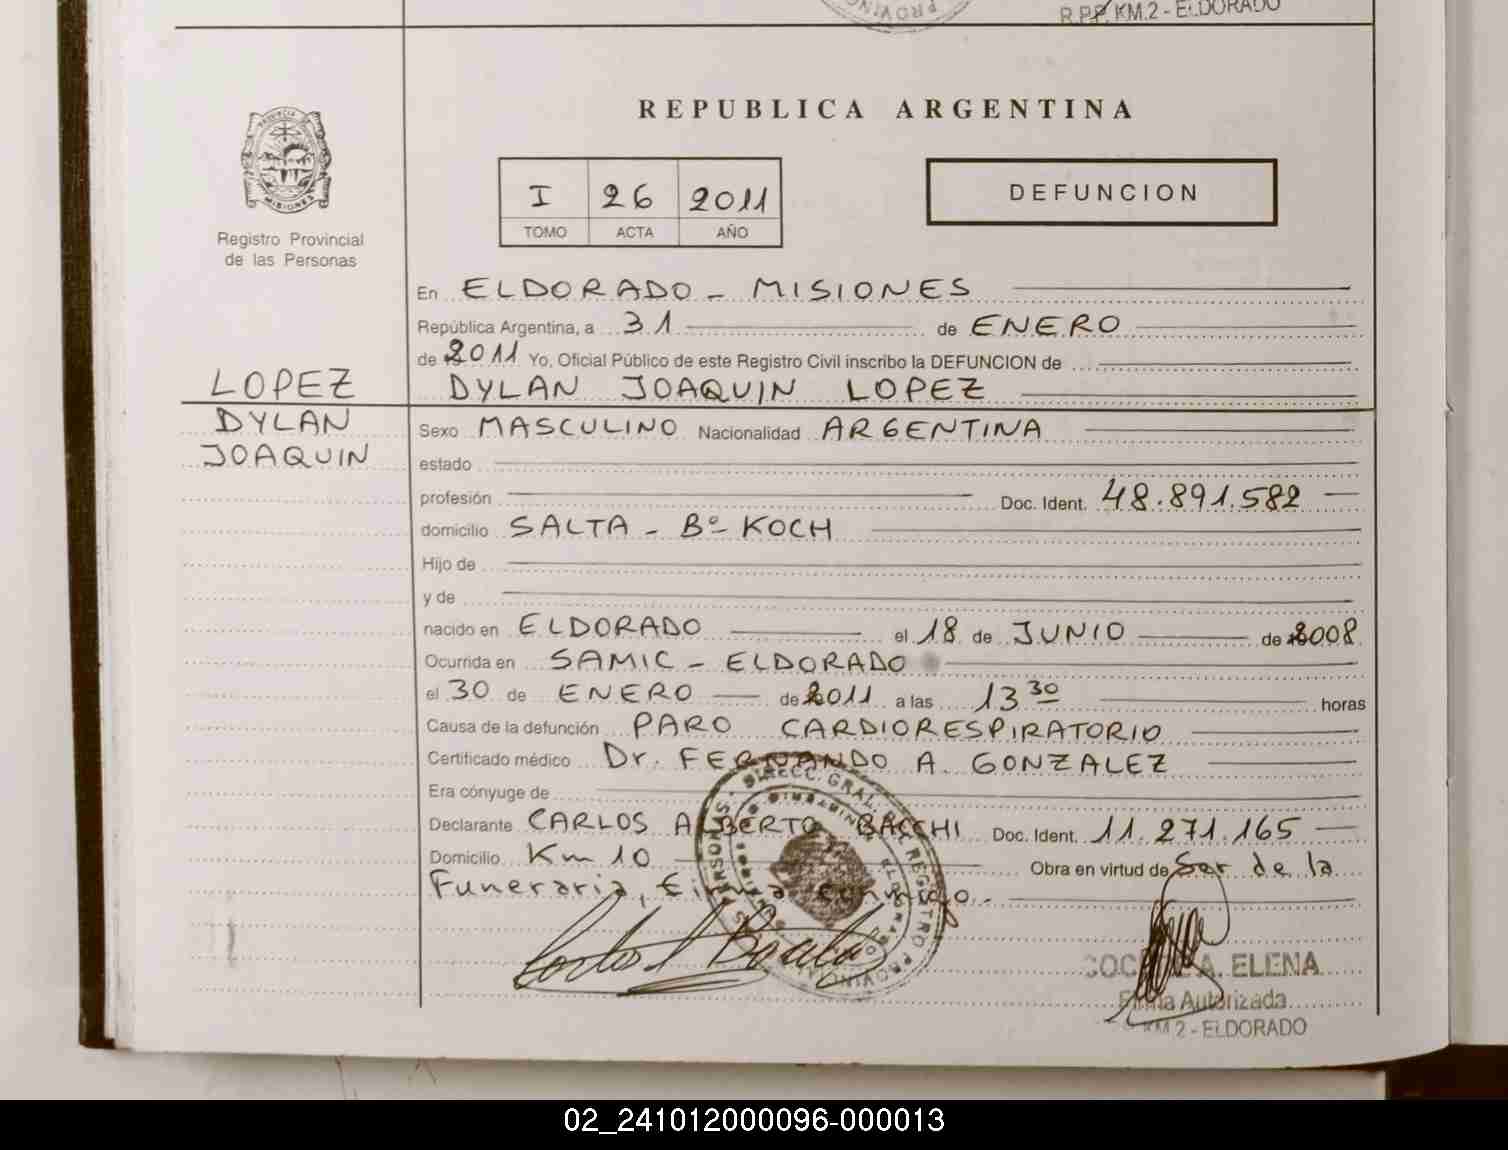 R.P.P. KM.2 - ELDORADO
REPUBLICA ARGENTINA
PROVINCIA DE
MISIONES
Registro Provincial
de las Personas
I 26 2011
TOMO ACTA AÑO
DEFUNCION
En ELDORADO - MISIONES
República Argentina, a 31 de ENERO
de 2011 Yo, Oficial Público de este Registro Civil inscribo la DEFUNCION de
LOPEZ DYLAN JOAQUIN LOPEZ
DYLAN
JOAQUIN
Sexo MASCULINO Nacionalidad ARGENTINA
estado
profesión Doc. Ident. 48.891.582
domicilio SALTA - Bº KOCH
Hijo de
y de
nacido en ELDORADO el 18 de JUNIO de 2008
Ocurrida en SAMIC - ELDORADO
el 30 de ENERO de 2011 a las 13 30 horas
Causa de la defunción PARO CARDIORESPIRATORIO
Certificado médico Dr. FERNANDO A. GONZALEZ
Era cónyuge de
Declarante CARLOS ALBERTO BACCHI Doc. Ident. 11.271.165
Domicilio Km 10 Obra en virtud de Ser de la
Funeraria,
DIRECC. GRAL. DEL REGISTRO PROVINCIAL DE LAS PERSONAS
ELDORADO
A. ELENA
Firma Autorizada
KM 2 - ELDORADO
02_241012000096-000013